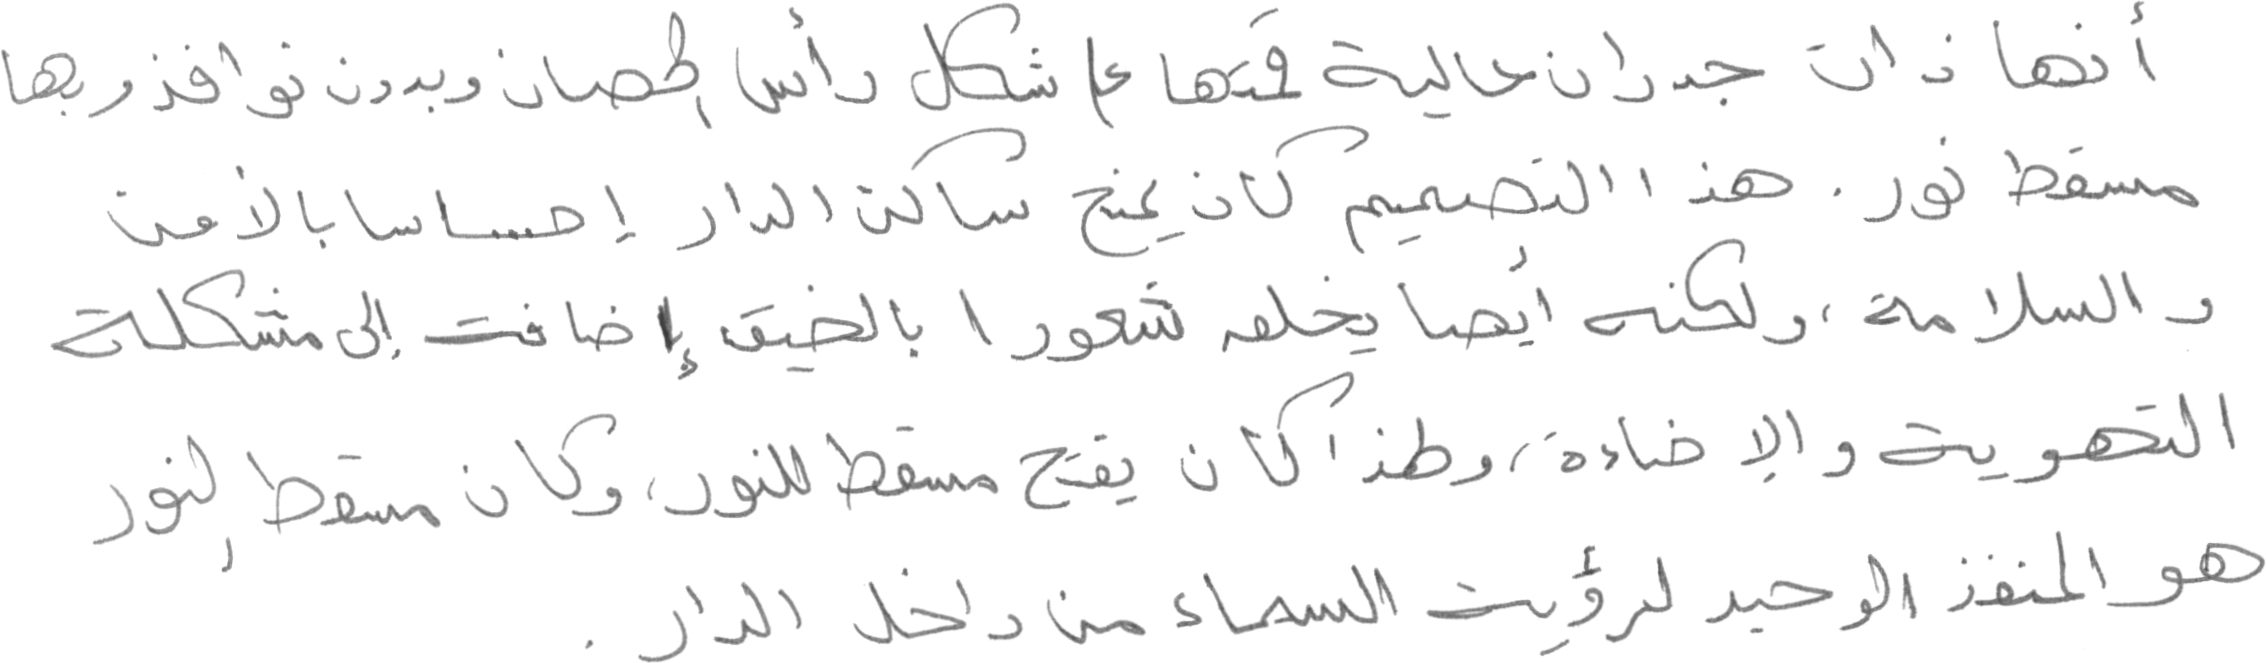 أنها ذات جدران عالية قمتها على شكل رأس الحصان وبدون نوافذ وبها
مسقط نور. هذا التصميم كان يمنح ساكن الدار إحساسا بالأمن
والسلامة، ولكنه أيضا يخلق شعورا بالضيق إضافة إلى مشكلة
التهوية والإضاءة، ولهذا كان يفتح مسقط للنور، وكان مسقط النور
هو المنفذ الوحيد لرؤية السماء من داخل الدار.